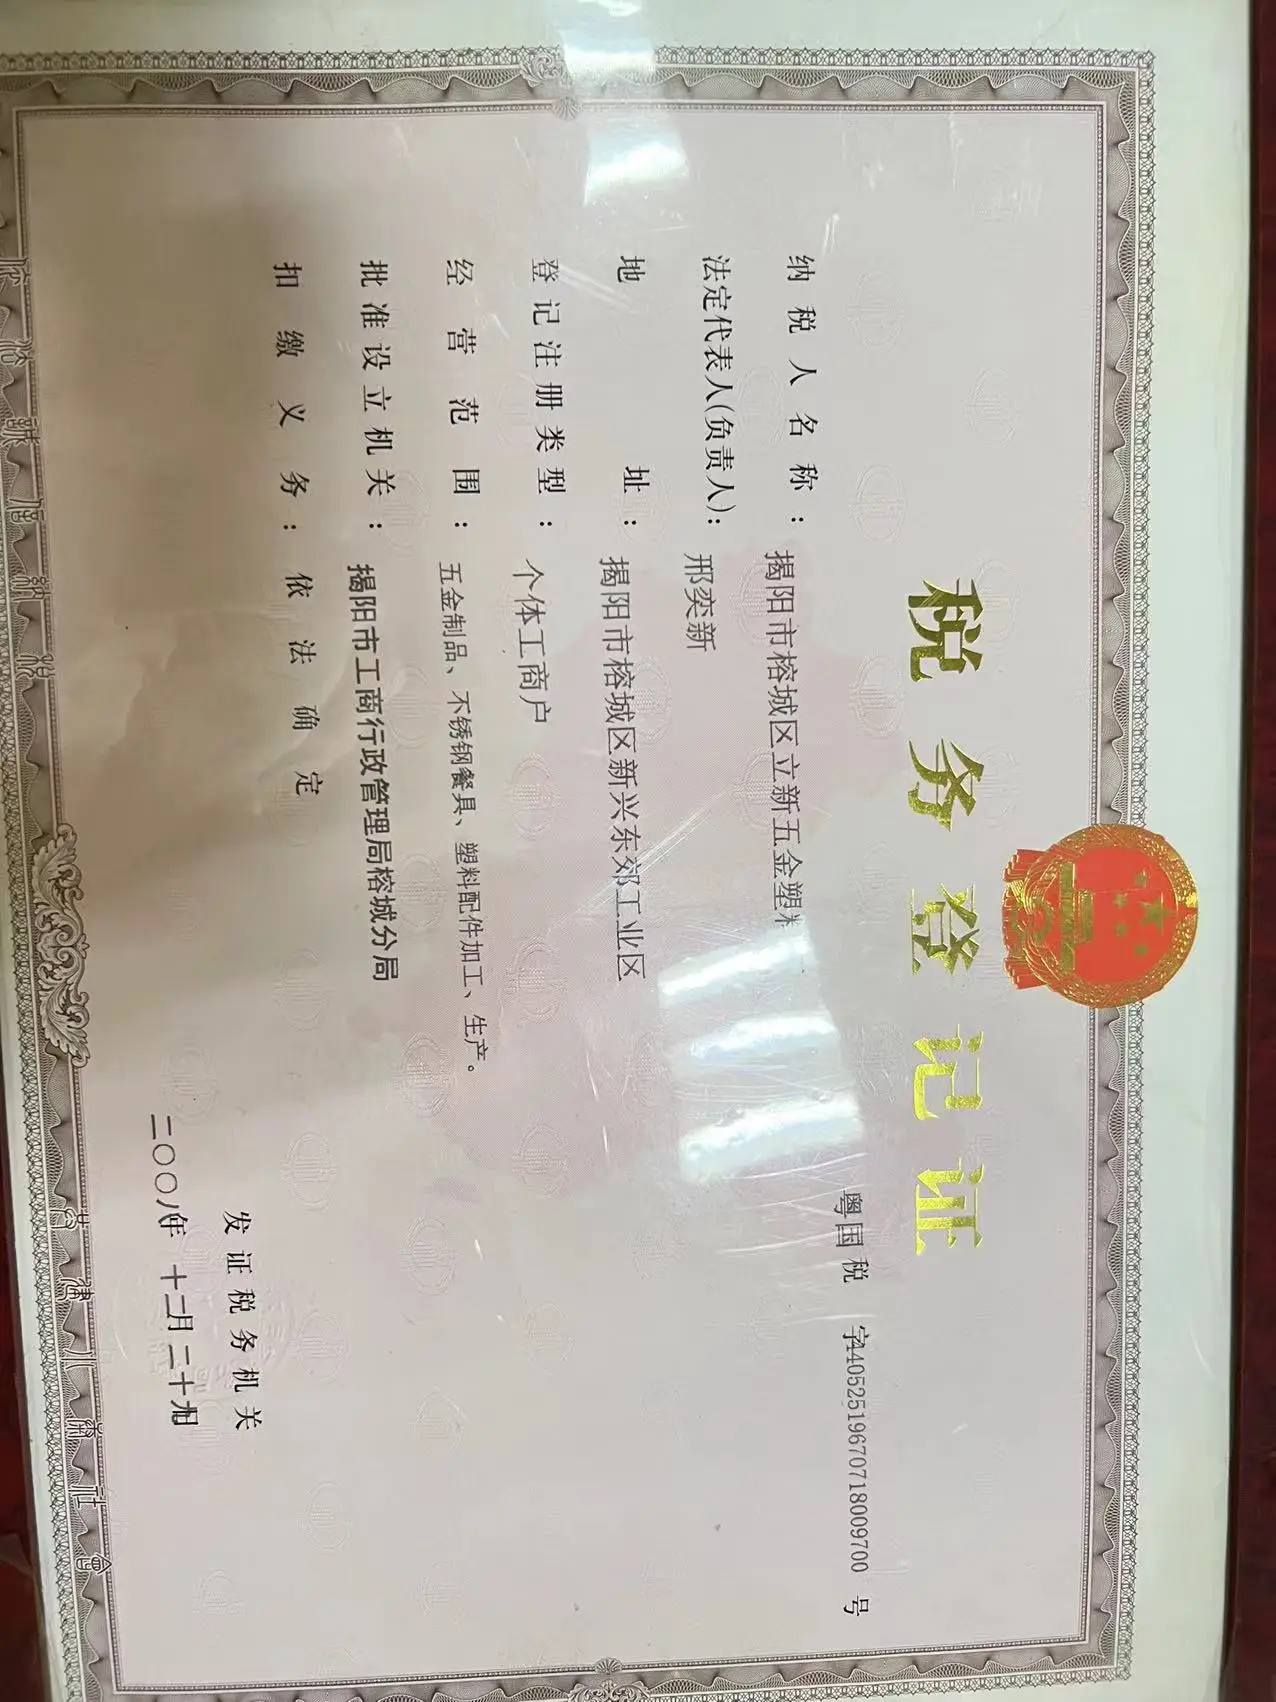 税务登记证
粤国税 字440525196707180097​00 号
纳税人名称：揭阳市榕城区立新五金塑
法定代表人(负责人)：邢奕新
地址：揭阳市榕城区新兴东郊工业区
登记注册类型：个体工商户
经营范围：五金制品、不锈钢餐具、塑料配件加工、生产。
批准设立机关：揭阳市工商行政管理局榕城分局
扣缴义务：依法确定
发证税务机关
二〇〇八年 十二月 二十九日